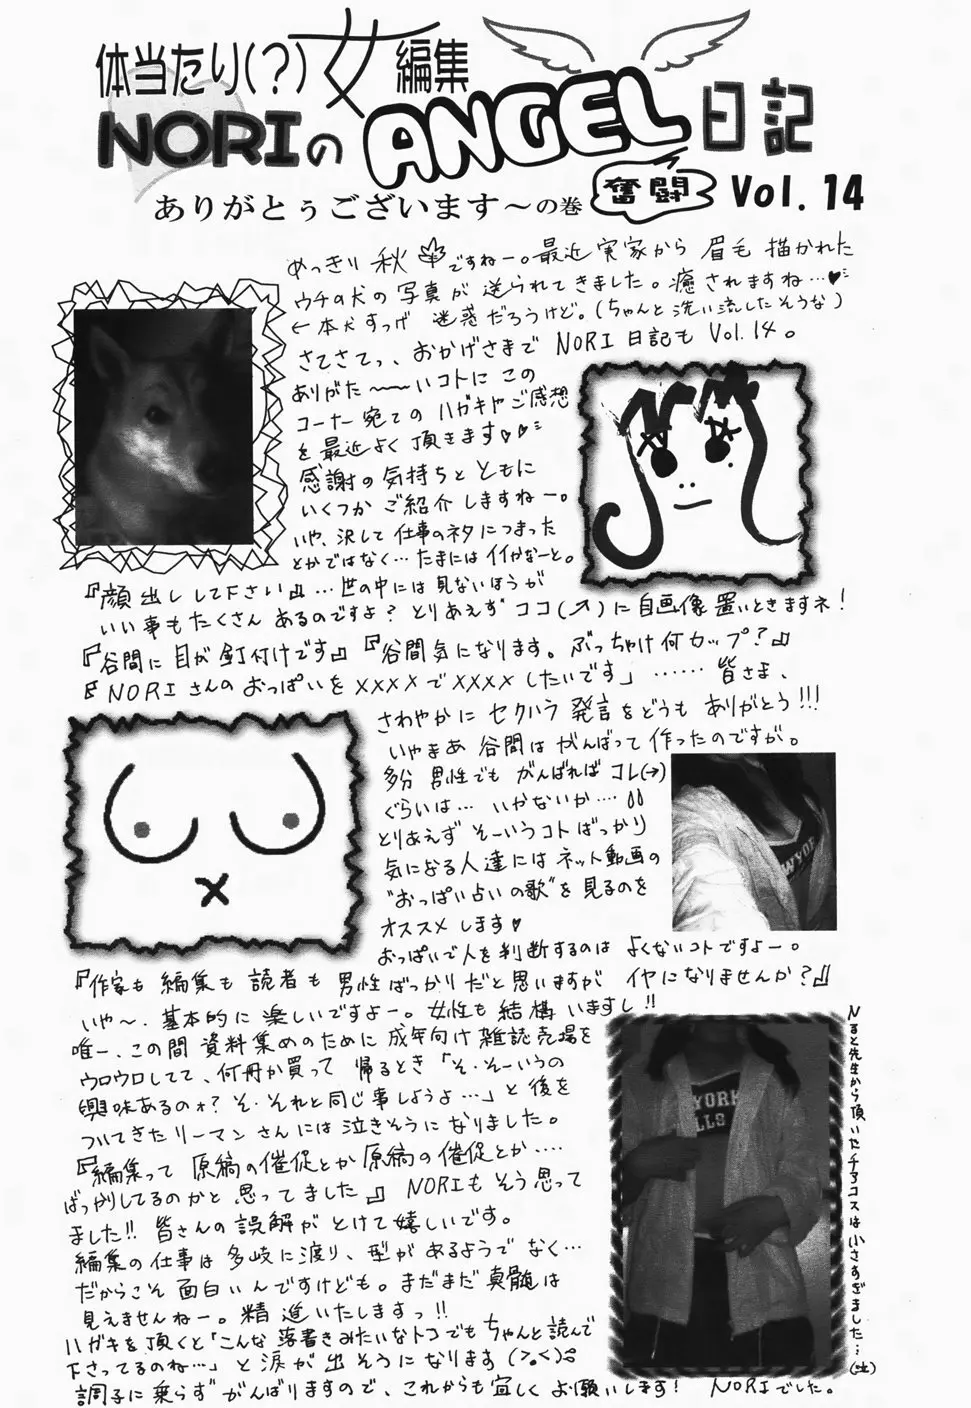 体当たり(?)女編集
NORIのANGEL日記
ありがとぅございます～の巻 奮闘 Vol. 14
めっきり 秋ですねー。最近 実家から 眉毛 描かれた
ウチの犬の 写真が 送られてきました。癒されますね…♥
←本犬すっげ 迷惑だろうけど。(ちゃんと洗い流したそうな)
さてさてっ、おかげさまで NORI 日記も Vol.14。
ありがた〜〜いコトに この
コーナー宛ての ハガキやご感想
を最近よく 頂きます♡♡
感謝の気持ちと ともに
いくつか ご紹介 しますねー。
いや、決して 仕事のネタにつまった
とかではなく… たまには イイかなーと。
『顔出し して下さい』… 世の中には 見ないほうが
いい事も たくさん あるのですよ? とりあえず ココ(↗)に 自画像 置いときますネ!
『谷間に 目が 釘付けです』『谷間気になります。ぶっちゃけ何カップ?』
『NORIさんの おっぱいを XXXXで XXXX したいです」…… 皆さま、
さわやかに セクハラ 発言を どうも ありがとう!!!
いやまあ 谷間は がんばって 作ったのですが。
多分 男性でも がんばれば コレ(→)
ぐらいは… いかないか…
とりあえず そーいうコト ばっかり
気になる人達には ネット動画の
"おっぱい占いの歌"を見るのを
オススメします♥
おっぱいで人を判断するのは よくないコトですよー。
『作家も 編集も 読者も 男性ばっかりだと思いますが イヤになりませんか?』
いや〜、基本的に 楽しいですよー。女性も 結構 いますし!!
唯一、この間 資料集めのために 成年向け 雑誌売場を
ウロウロしてて、何冊か買って 帰るとき「そ・そーいうの
興味あるのォ? そ・それと同じ事しようよ…」と 後を
ついてきた リーマンさんには 泣きそうになりました。
『編集って 原稿の催促とか 原稿の催促とか…
ばっかりしてるのかと 思ってました』 NORIも そう思って
ました!! 皆さんの 誤解が とけて 嬉しいです。
編集の 仕事は 多岐に渡り、型が あるようで なく…
だからこそ 面白いんですけども。まだまだ 真髄は
見えませんねー。精進いたしますっ!!
ハガキを 頂くと「こんな 落書きみたいなトコでも ちゃんと読んで
下さってるのね…」と 涙が 出そうになります(>。<)
調子に 乗らず がんばりますので、これからも 宜しく お願いします! NORIでした。
YORK
先生から頂いたチアコスは小さすぎました…(泣)